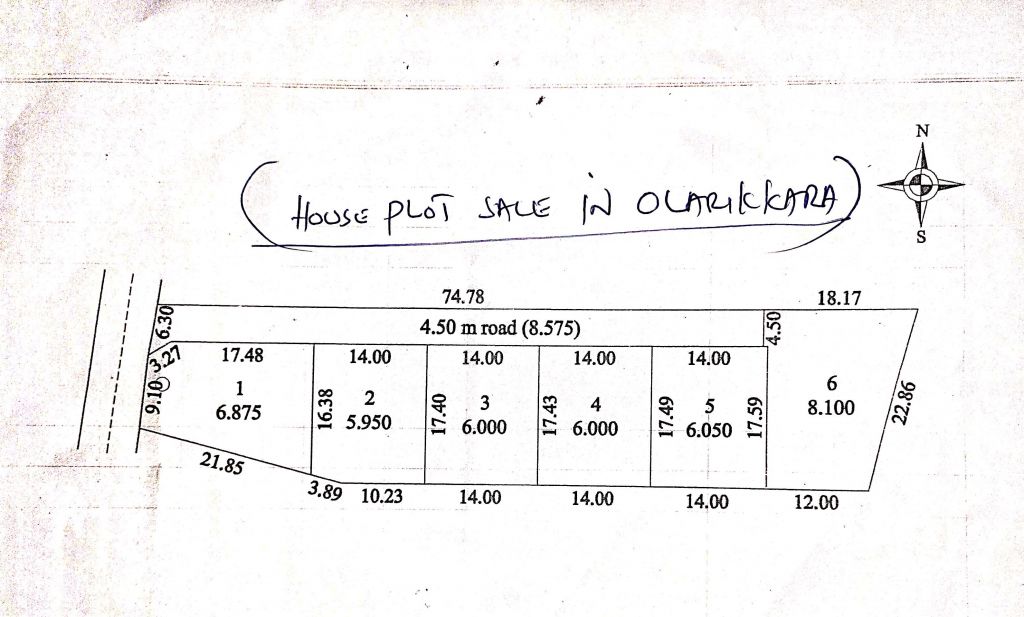 N
HOUSE PLOT SALE IN OLARIKKARA
S
74.78
18.17
6.30
4.50 m road (8.575)
4.50
3.27
17.48
14.00
14.00
14.00
14.00
9.10
1
6.875
16.38
2
5.950
17.40
3
6.000
17.43
4
6.000
17.49
5
6.050
17.59
6
8.100
22.86
21.85
3.89
10.23
14.00
14.00
14.00
12.00